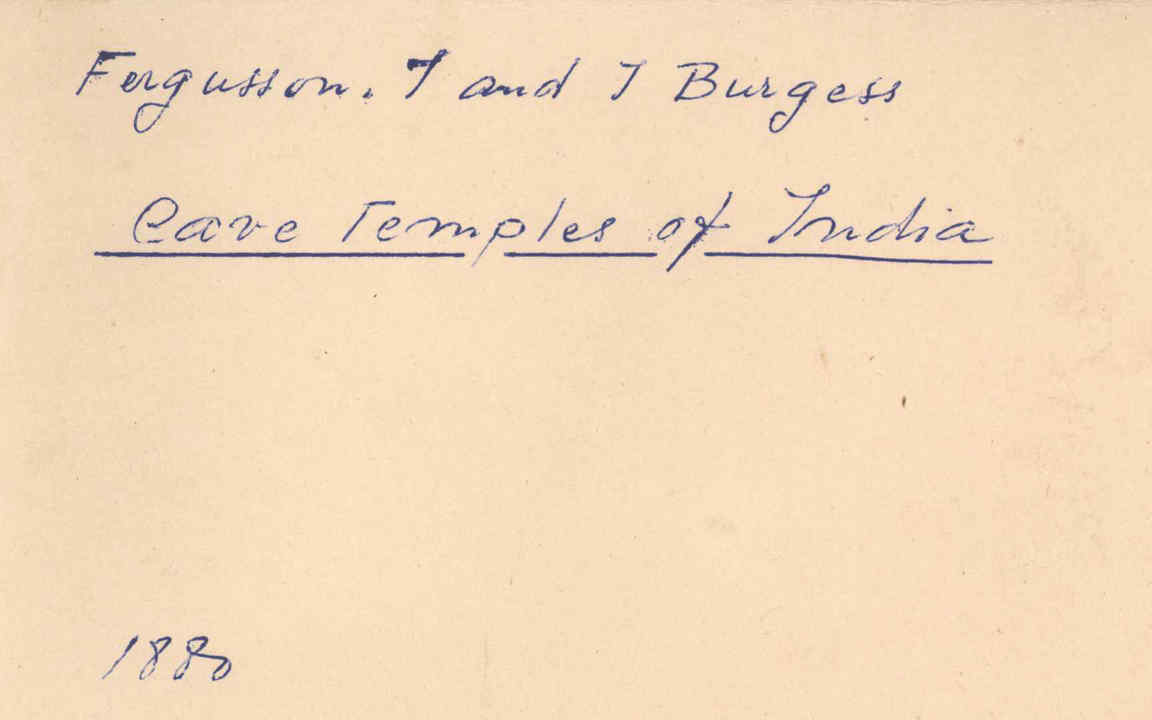 Fergusson. J and J Burgess
Cave Temples of India
1880